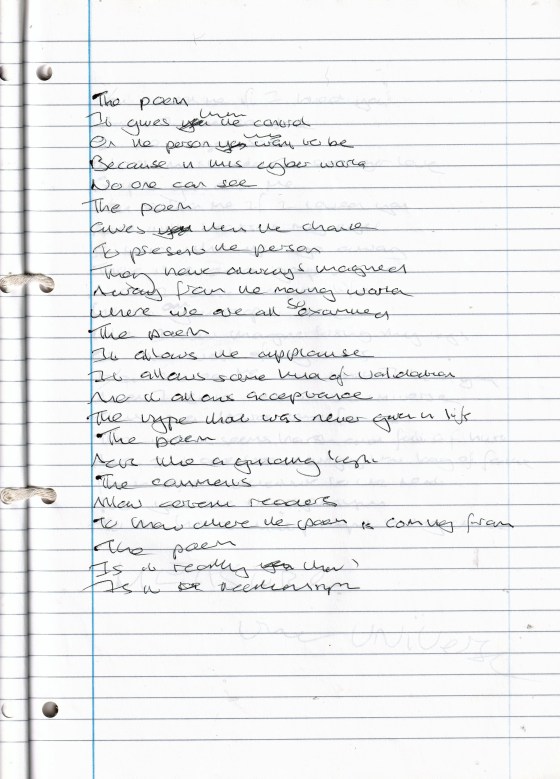 The poem
It gives them the control
On the person they want to be
Because in this cyber world
No one can see
The poem
Gives them the chance
To present the person
They have always imagined
Away from the moving world
where we are all so examined
The poem
It allows the applause
It allows some kind of validation
And it allows acceptance
The hype that was never given in life
The poem
Acts like a guiding light
The comments
Allow certain readers
To know where the poem is coming from
The poem
Is it really them
Is it